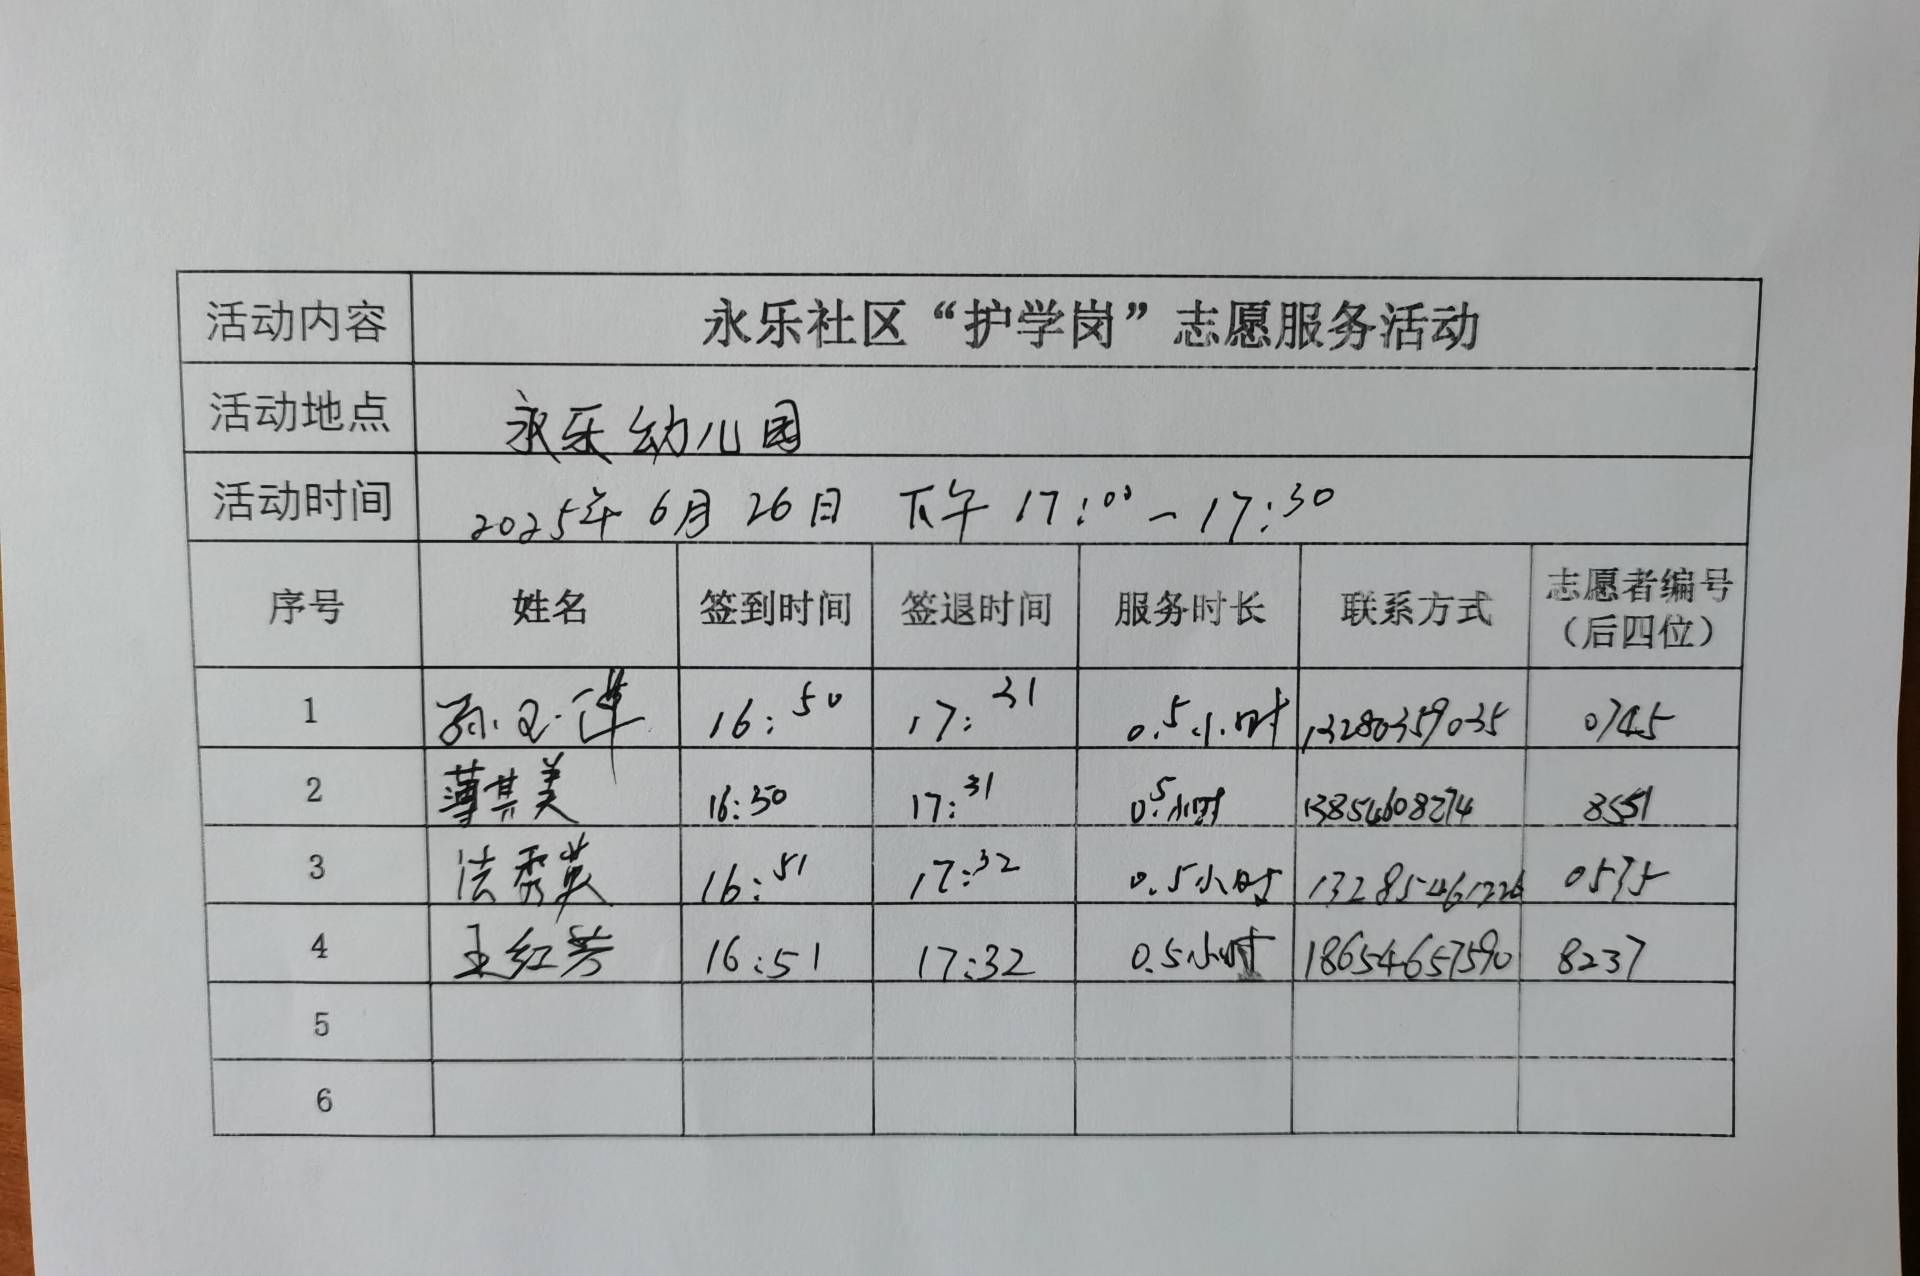 活动内容 永乐社区“护学岗”志愿服务活动
活动地点 永乐幼儿园
活动时间 2025年 6月 26日 下午 17:00-17:30
序号 姓名 签到时间 签退时间 服务时长 联系方式 志愿者编号
（后四位）
1 孙 16:50 17:31 0.5小时 13280359035 0745
2 薄其美 16:50 17:31 0.5小时 13854608274 8551
3 法秀英 16:51 17:32 0.5小时 0535
4 王红芳 16:51 17:32 0.5小时 18654657590 8237
5
6